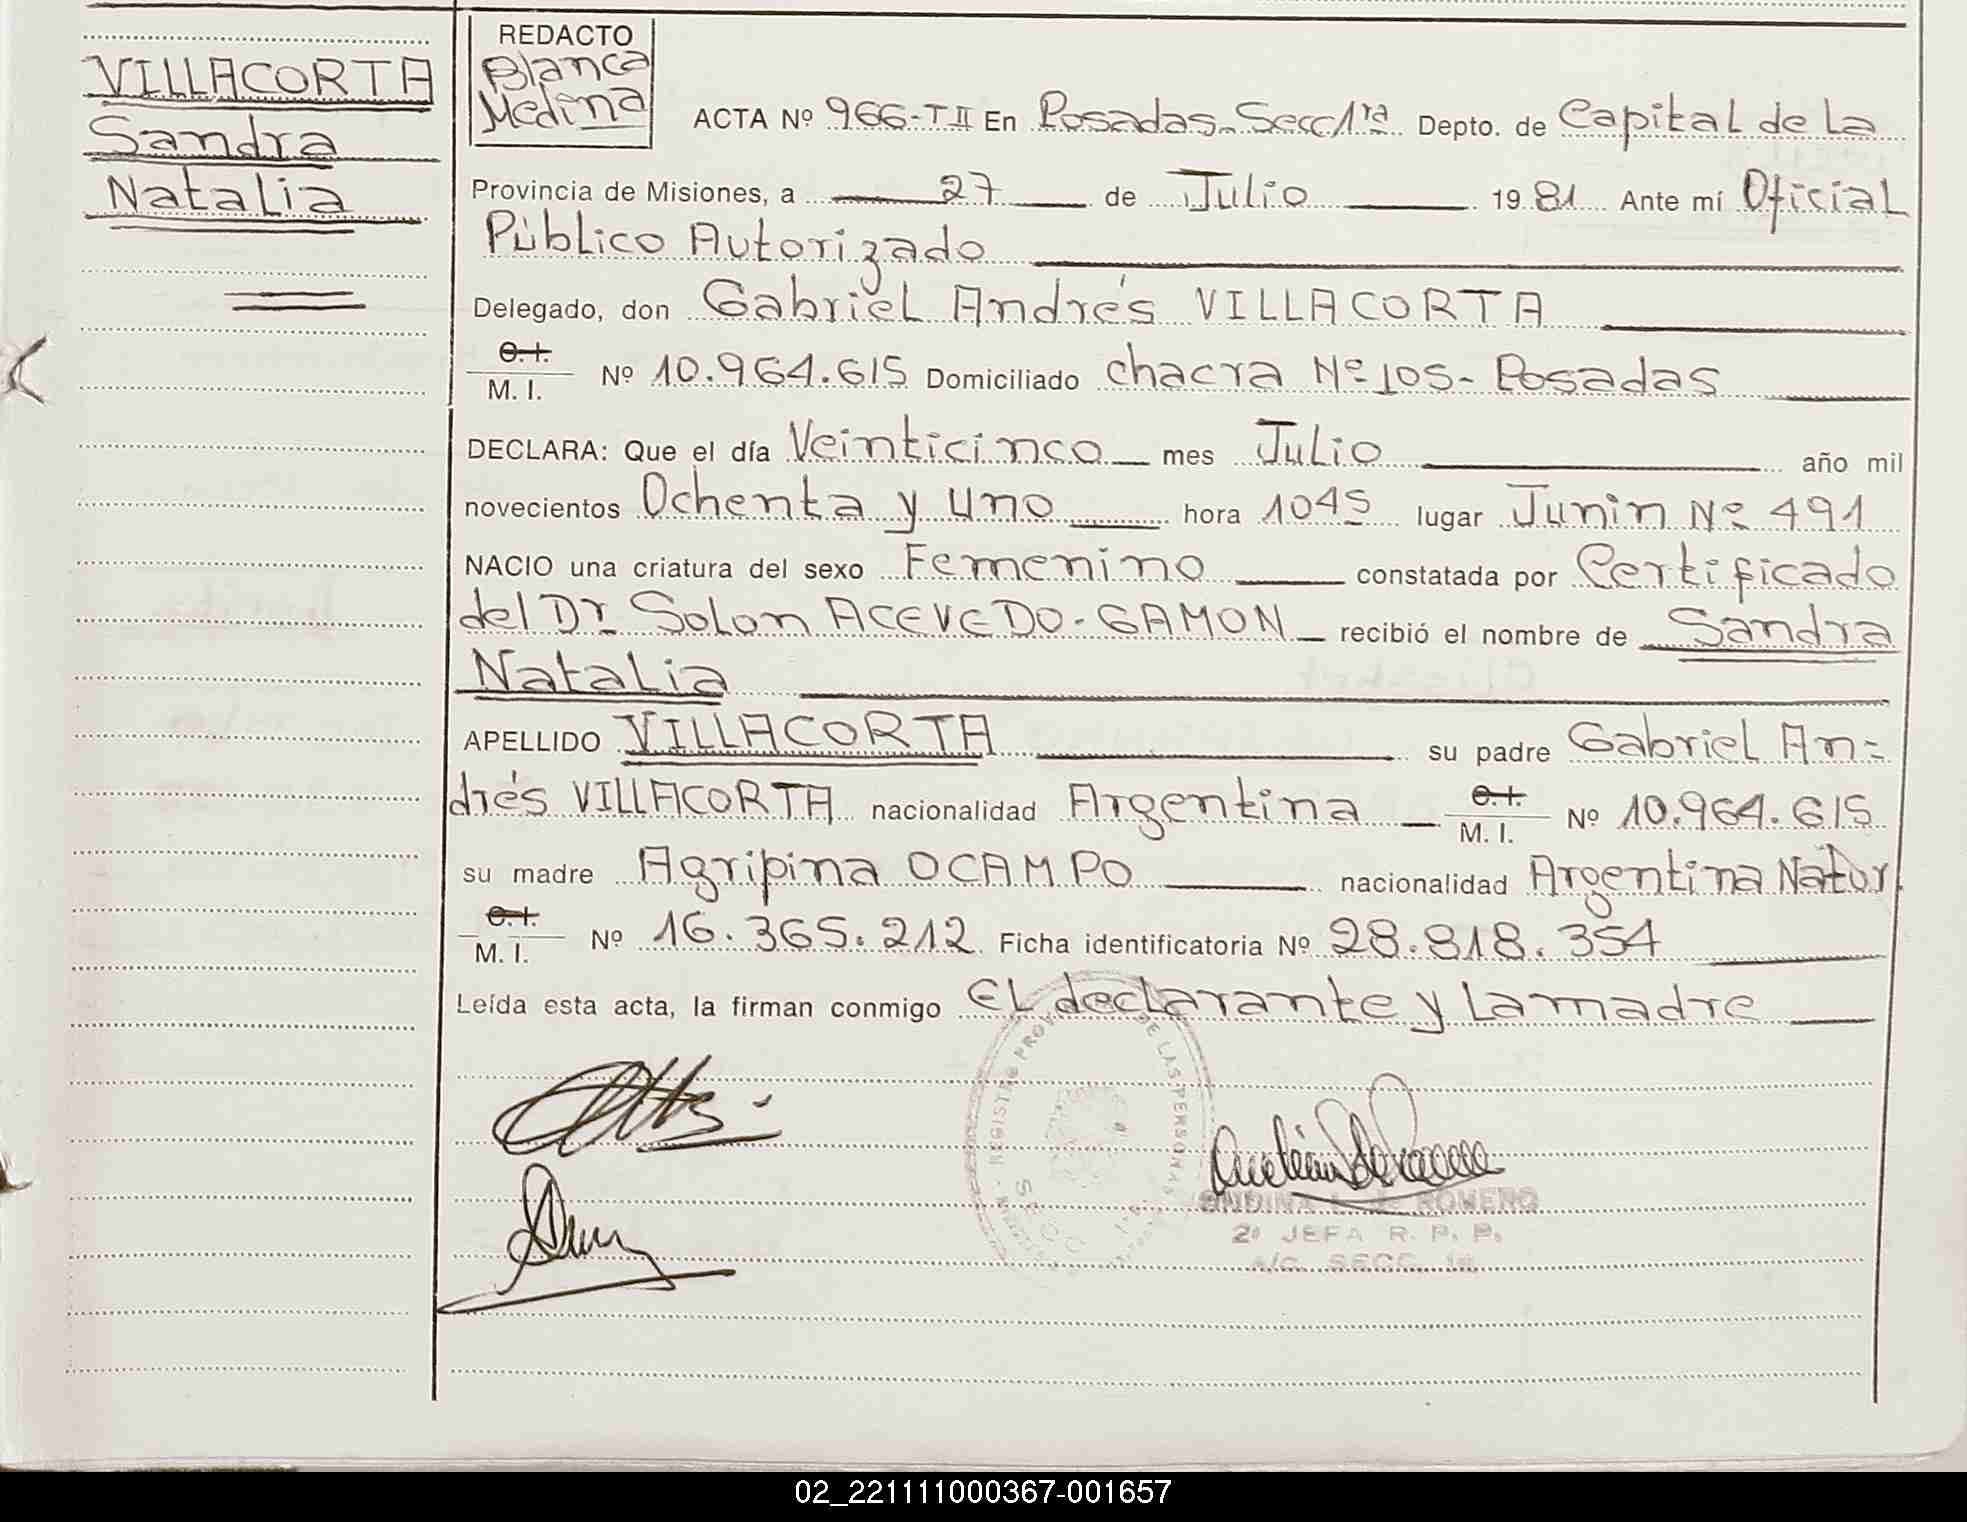 VILLACORTA
Sandra
Natalia
REDACTO
Blanca
Medina
ACTA Nº 966-T II En Posadas-Secc 1ra Depto. de Capital de la
Provincia de Misiones, a 27 de Julio 1981 Ante mí Oficial
Público Autorizado
Delegado, don Gabriel Andrés VILLACORTA
C.I.
M. I. Nº 10.964.615 Domiciliado chacra Nº 105- Posadas
DECLARA: Que el día Veinticinco mes Julio año mil
novecientos Ochenta y uno hora 1045 lugar Junin Nº 491
NACIO una criatura del sexo Femenino constatada por Certificado
del Dr. Solon ACEVEDO-GAMON recibió el nombre de Sandra
Natalia
APELLIDO VILLACORTA su padre Gabriel An=
drés VILLACORTA nacionalidad Argentina C.I.
M. I. Nº 10.964.615
su madre Agripina OCAMPO nacionalidad Argentina Natur.
C.I.
M. I. Nº 16.365.212 Ficha identificatoria Nº 28.818.354
Leída esta acta, la firman conmigo El declarante y La madre
REGISTRO PROV DE LAS PERSONAS
SECC
ROMERO
2º JEFA R. P. P.
A/C. SECC. 1a
02_221111000367-001657